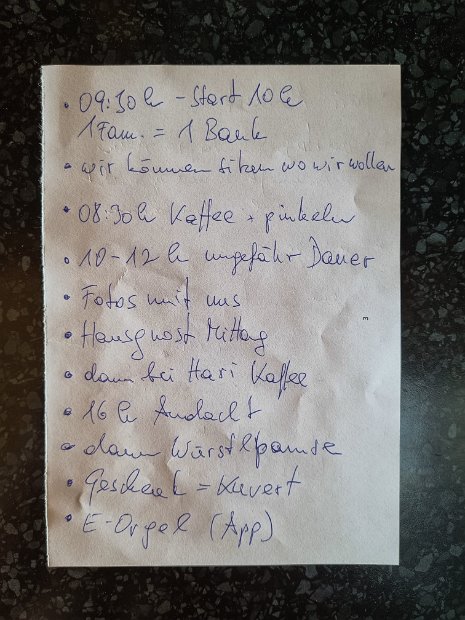 • 09:30h - Start 10h
1 Fam. = 1 Bank
• wir können sitzen wo wir wollen
• 08:30h Kaffee + pinkeln
• 10-12h ungefähr Dauer
• Fotos mit uns
• Hausgnost Mittag
• dann bei Hari Kaffee
• 16h Andacht
• dann Würstlpamde
• Geschenk = Kuvert
• E-Orgel (App)